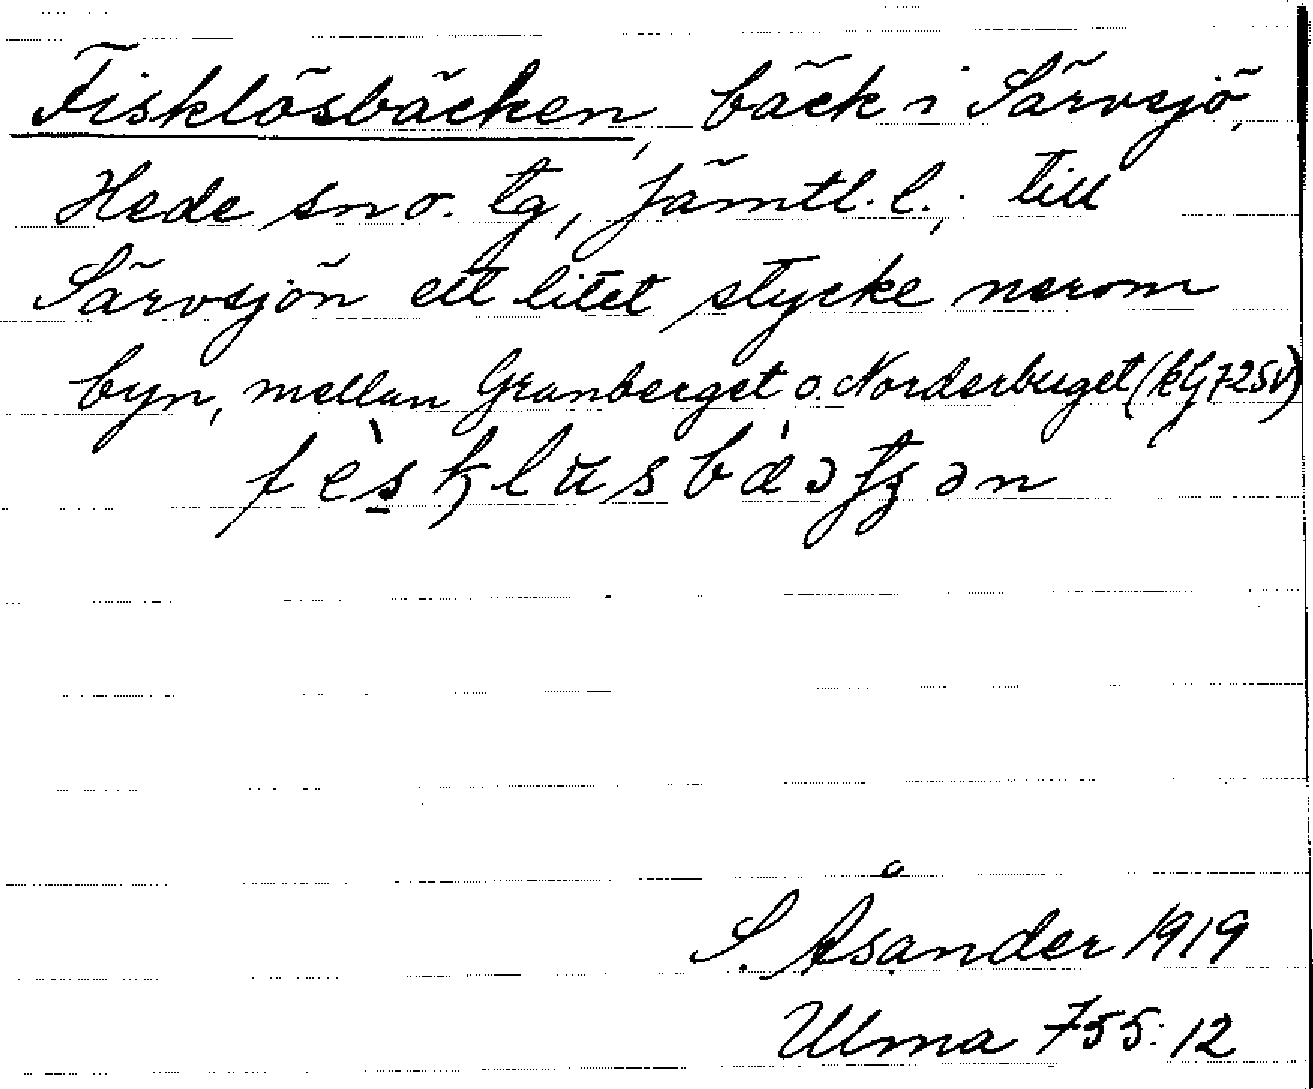 Fisklösbäcken, bäck i Särvsjö,
Hede sn o. tg, Jämtl. l.; till
Särvsjön ett litet stycke nerom
byn, mellan Granberget o. Norderbuget (kG 725V)
S. Åsander 1919
Ulma 755:12